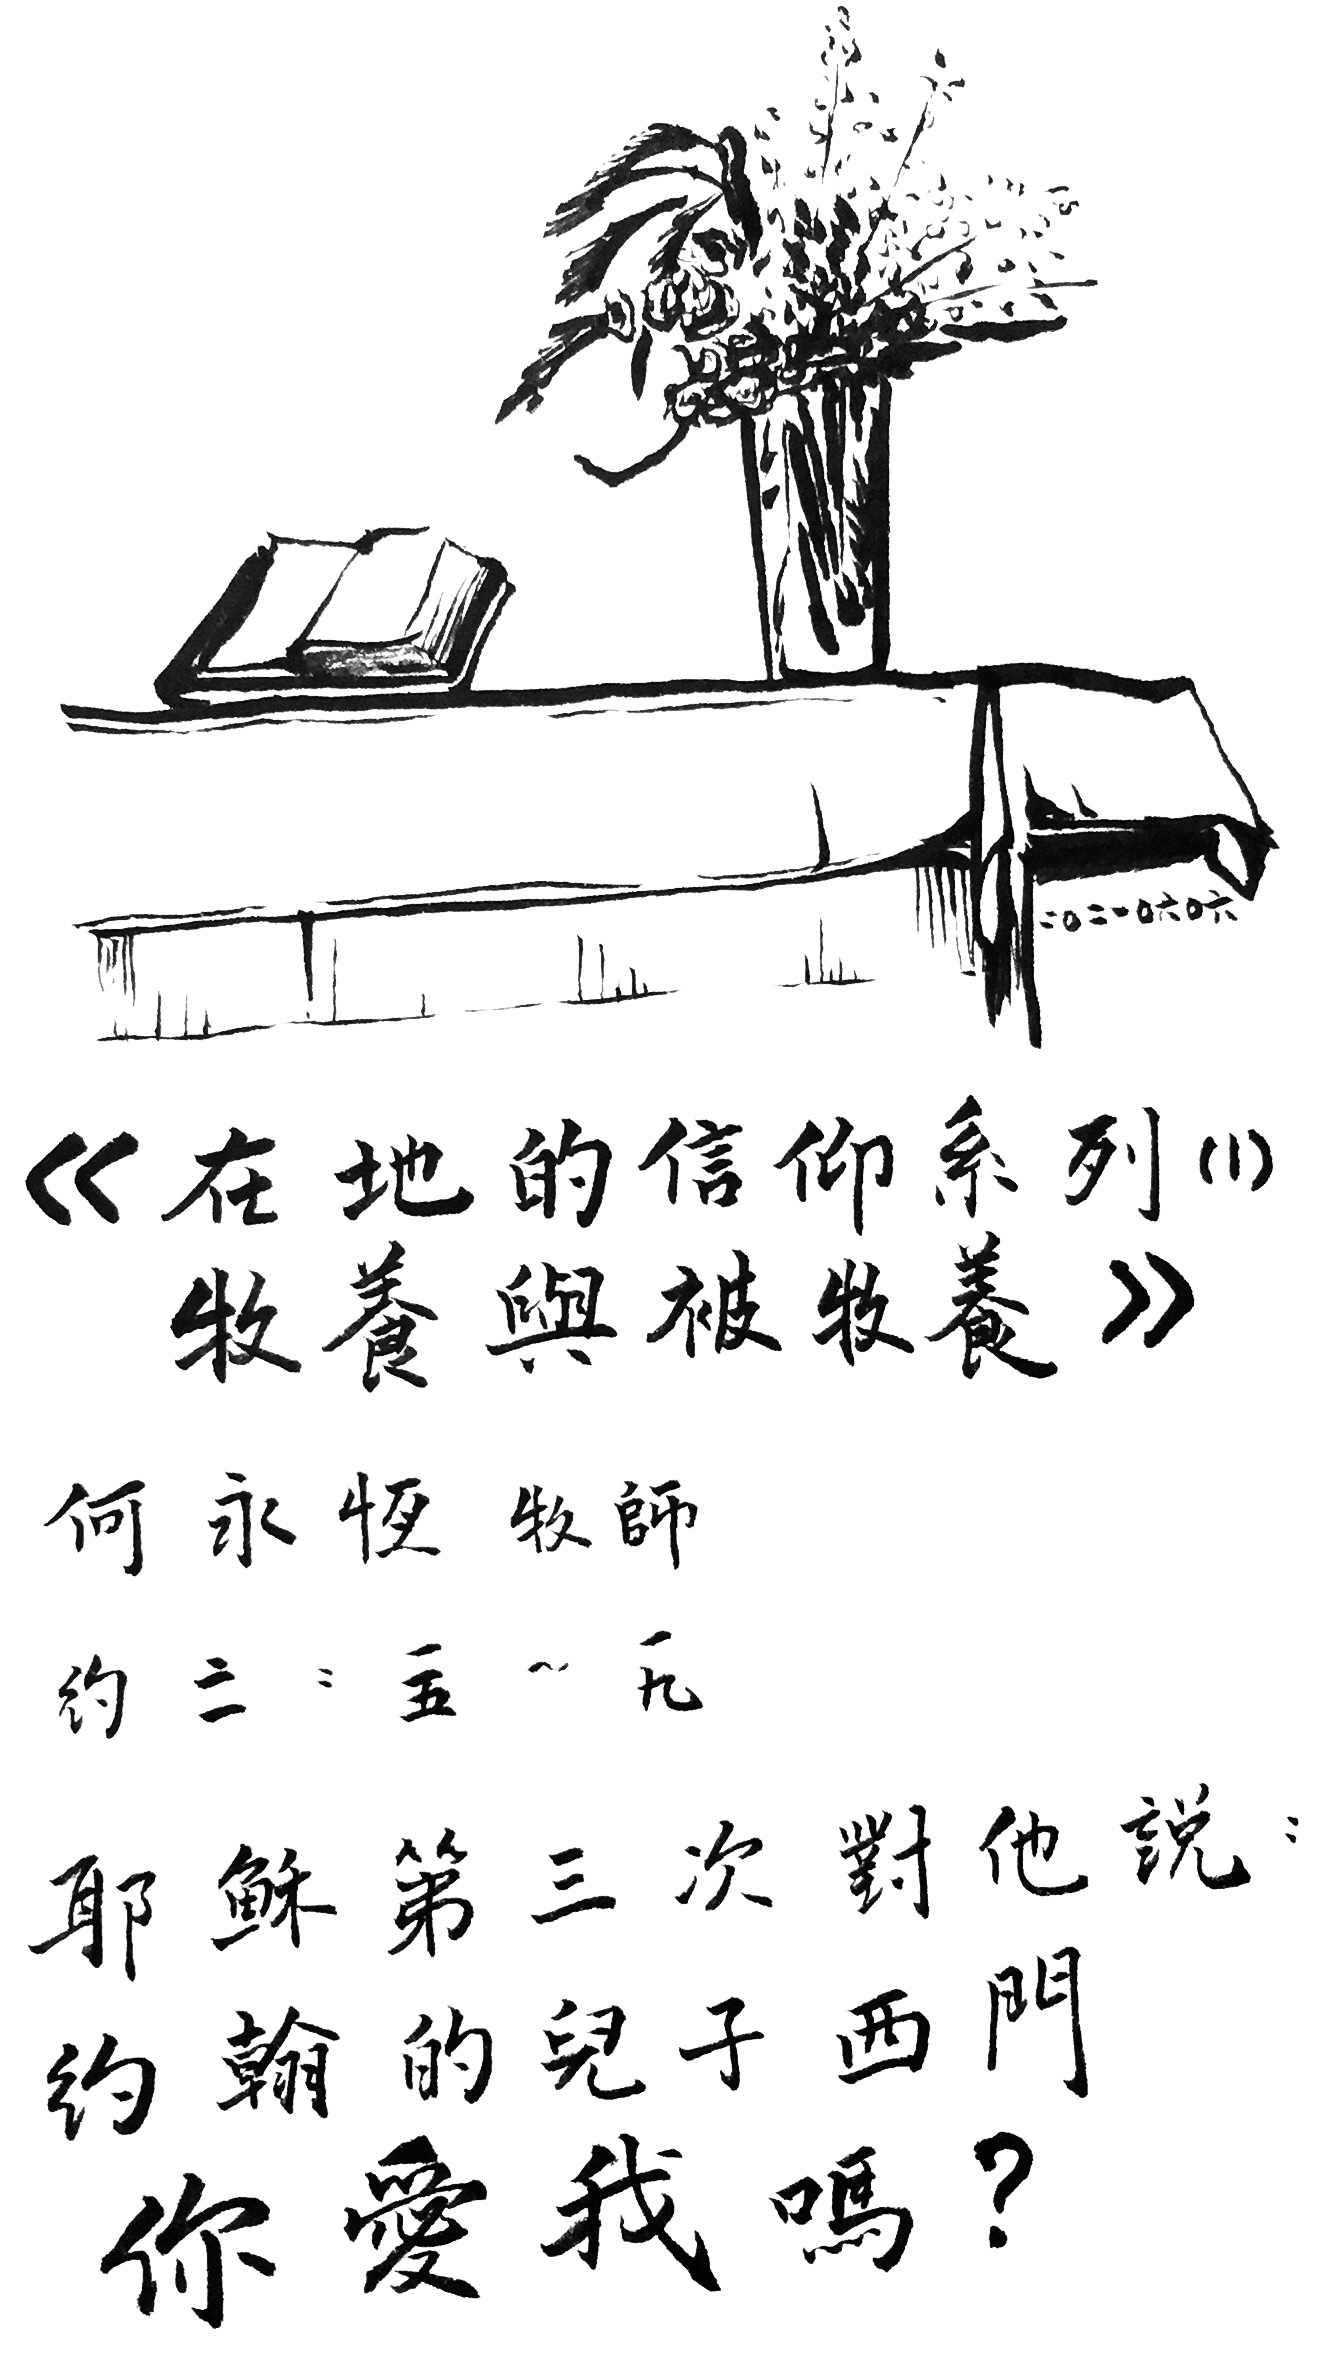 二０二一０六０六
《在地的信仰系列(1)
牧養與被牧養》
何永恆 牧師
約二：五～一九
耶穌第三次對他說：
約翰的兒子西門
你愛我嗎？